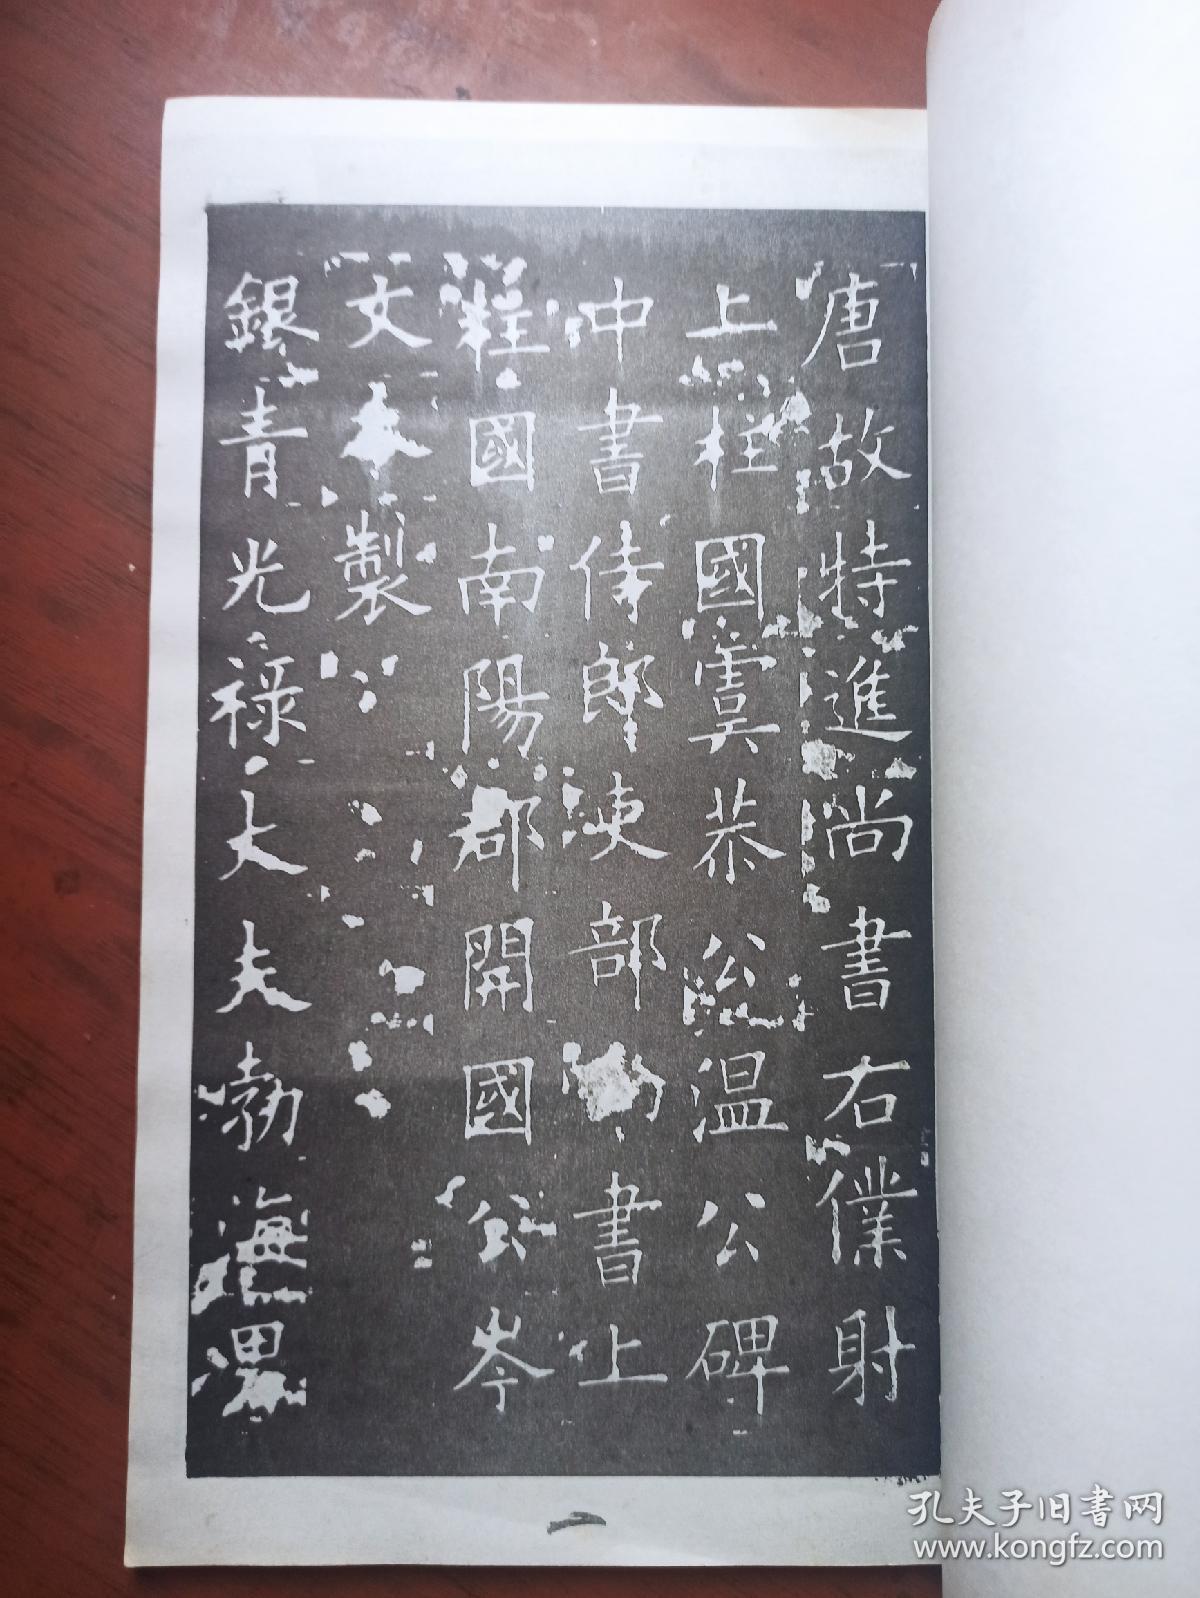 唐故特進尚書右僕射
上柱國虞恭公温公碑
中書侍郎吏部書上
柱國南陽郡開國公岑
文本製
銀青光禄大夫勃海男
孔夫子旧书网
www.kongfz.com